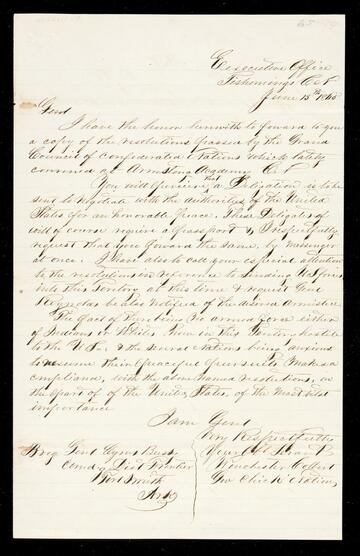 Executive Office
Tishomingo C N
June 15th 1865
Genl
I have the honor herewith to foward to you
a copy of the resolutions passed by the Grand
Council of confederated Nations which lately
convened at Armstrong Academy C N
You will perceive that a Deligation is to be
sent to negotiate with the authorities of the United
States for an honorable peace. These Deligates
will of course require a passport & I respectfully
request that you foward the same, by messenger
at once. I have also to call your especial attention
to the resolution in reference to sending
into this Territory at this time & request Genl
Reynolds be also notified of the desired Armistice
The fact of there being no armed force either
of Indians or Whites now in this Territory hostile
to the U.S. & the several Nations being anxious
to resume their peaceful persuits makes a
compliance, with the above named resolutions, on
the part of the United States, of the most vital
importance
I am Genl
Very Respectfully
Your Obt Servt
Winchester Colbert
Gov Chick Nation
Brig Genl Cyrus Bussey
Comdg Dist Frontier
Fort Smith
Ark